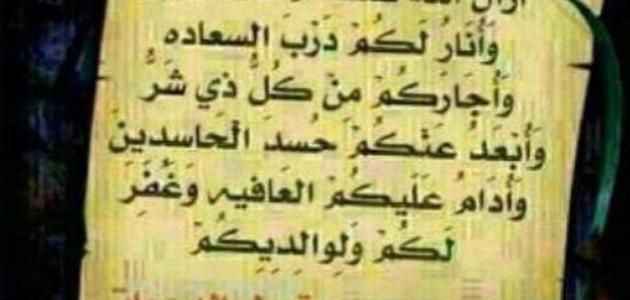 وَأَنَارُ لَكُمْ دَرْبَ السعاده
وَأَجَارَكُمْ مِنْ كُلُّ ذي شَرُّ
وَأَبْعَدُ عَنْكُمْ حُسدَ الْحَاسدِينَ
وَأَدَامُ عَلَيكُمْ العَافيه وَغُفَرَ
لَكُمْ وَلِوالِدِيِكُمْ